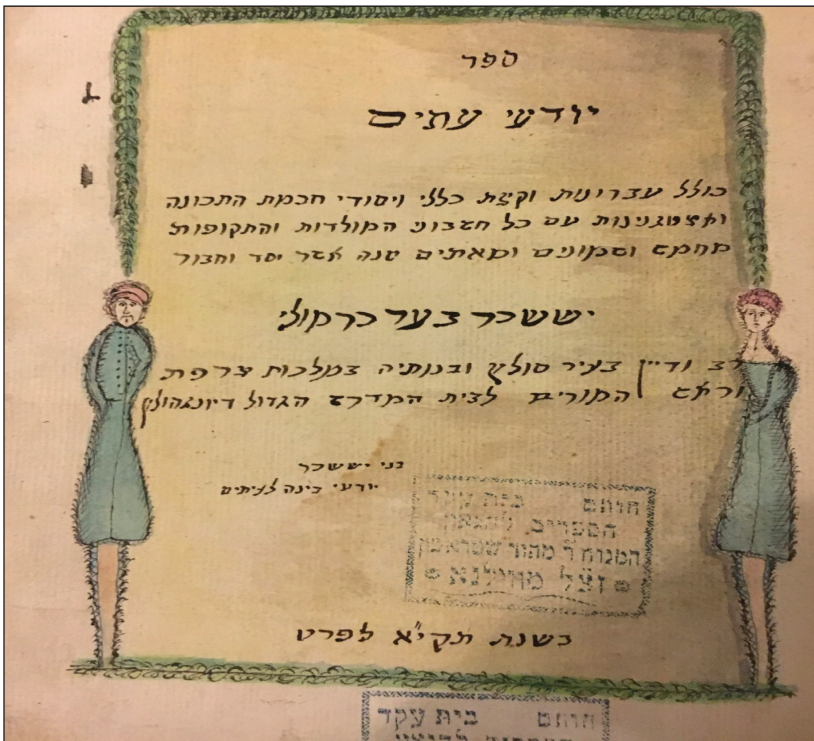 ספר
יודעי עתים
כולל עברונות וקצת כללי ויסודי חכמת התכונה
ואצטגנינות עם כל חשבוני המולדות והתקופות
מחמש ושמונים ומאתים שנה אשר יסד וחבור
יששכר בער כרמולי
רב ודיין בעיר סולץ ובנותיה במלכות צרפת
וראש המורים לבית המדרש הגדול
בני יששכר
יודעי בינה לעיתים
חותם בית עקד
הספרים להגאון
המנוח ר' מהור שטראשון
זצ״ל מווילנא
בשנת תקי״א לפרט
חותם בית עקד